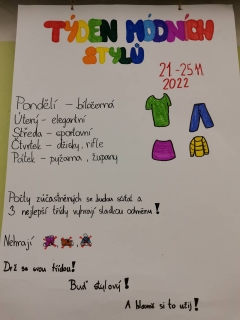 TÝDEN MÓDNÍCH
STYLŮ
21-25.11
2022
Pondělí – biločerná
Úterý – elegantní
Středa – sportovní
Čtvrtek – džísky, rifle
Pátek – pyžama, župany
Počty zúčastněných se budou sčítat a
3 nejlepší třídy vyhrají sladkou odměnu!
Nehrají
Drž se svou třídou!
Buď stylový!
A hlavně si to užij!